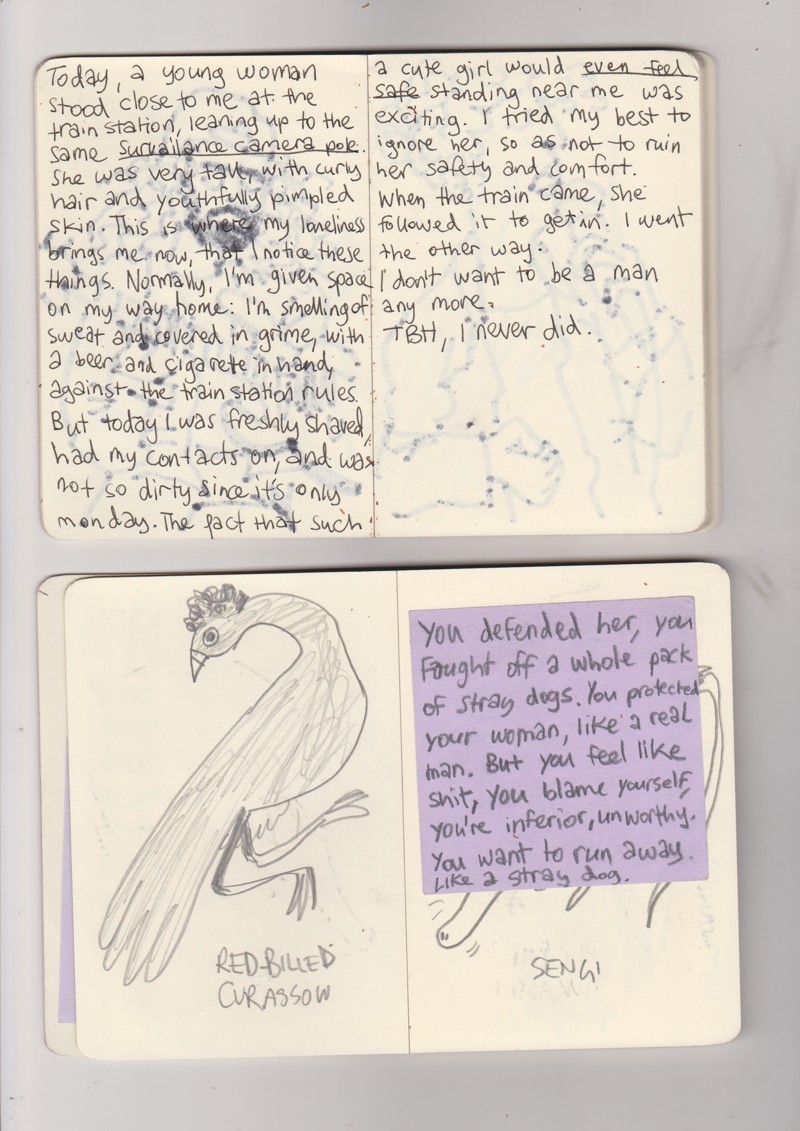 Today, a young woman
stood close to me at the
train station, leaning up to the
same survailance camera pole.
She was very tall, with curly
hair and youthfully pimpled
skin. This is where my loneliness
brings me now, that I notice these
things. Normally, I'm given space
on my way home: I'm smelling of
sweat and covered in grime, with
a beer and cigarete in hand,
against the train station rules.
But today I was freshly shaved,
had my contacts on, and was
not so dirty since it's only
monday. The fact that such
a cute girl would even feel
safe standing near me was
exciting. I tried my best to
ignore her, so as not to ruin
her safety and comfort.
When the train came, she
followed it to get in. I went
the other way.
I don't want to be a man
any more.
TBH, I never did.
RED-BILLED
CURASSOW
You defended her, you
fought off a whole pack
of stray dogs. You protected
your woman, like a real
man. But you feel like
shit, you blame yourself,
you're inferior, unworthy.
You want to run away.
Like a stray dog.
SENGI